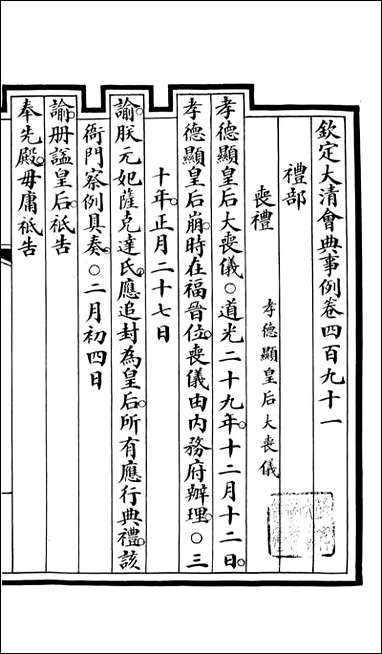 欽定大清會典事例卷四百九十一
禮部
喪禮 孝德顯皇后大喪儀
孝德顯皇后大喪儀○道光二十九年十二月十二日
孝德顯皇后崩時在福晉位喪儀由內務府辦理○三
十年正月二十七日
諭朕元妃薩克達氏應追封為皇后所有應行典禮該
衙門察例具奏○二月初四日
諭冊諡皇后祗告
奉先殿毋庸祗告